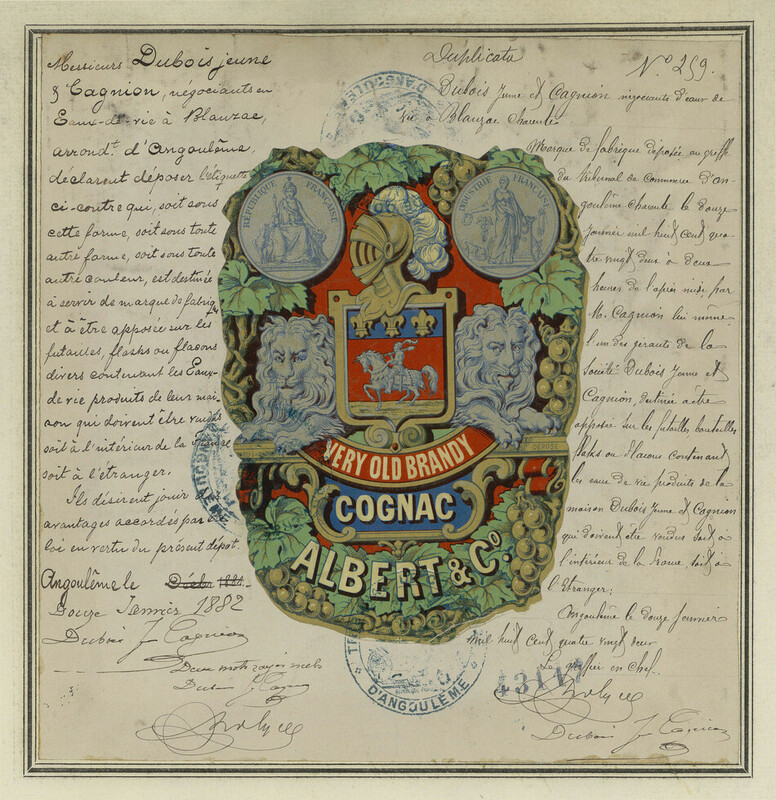 Messieurs Dubois jeune
& Cagnion, négociants en
Eaux-de-vie à Blanzac,
arrondt. d'Angoulême,
déclarent déposer l'étiquette
ci-contre qui, soit sous
cette forme, soit sous toute
autre forme, soit sous toute
autre couleur, est destinée
à servir de marque de fabrique
et à être apposée sur les
futailles, flasks ou flacons
divers contenant les Eaux-
de-vie produits de leur mai-
son qui doivent être vendus
soit à l'intérieur de la France
soit à l'étranger.
Ils désirent jouir des
avantages accordés par la
loi en vertu du présent dépôt.
Angoulême le
Douze Janvier 1882
Dubois J Cagnion
Deux mots rayés nuls
Dub J Cagn
Duplicata
N° 259.
Dubois Jeune et Cagnion négociants d'eaux de
vie à Blanzac Charente
Marque de fabrique déposée au greffe
du Tribunal de Commerce d'An-
goulême Charente le douze
janvier mil huit cent qua
tre vingt deux à deux
heures de l'après midi, par
M. Cagnion lui même
l'un des gérants de la
Société Dubois Jeune et
Cagnion, destinée à être
apposée sur les futailles bouteilles
flasks ou flacons contenant
les eaux de vie produits de la
maison Dubois Jeune et Cagnion
qui doivent être vendus soit à
l'intérieur de la France, soit à
l'Etranger.
Angoulême le douze Janvier
mil huit cent quatre vingt deux
Le greffier en chef
Dubois J Cagnion
RÉPUBLIQUE FRANÇAISE
INDUSTRIE FRANÇAISE
DÉPOSÉ
VERY OLD BRANDY
COGNAC
ALBERT & Co.
D'ANGOULÊME